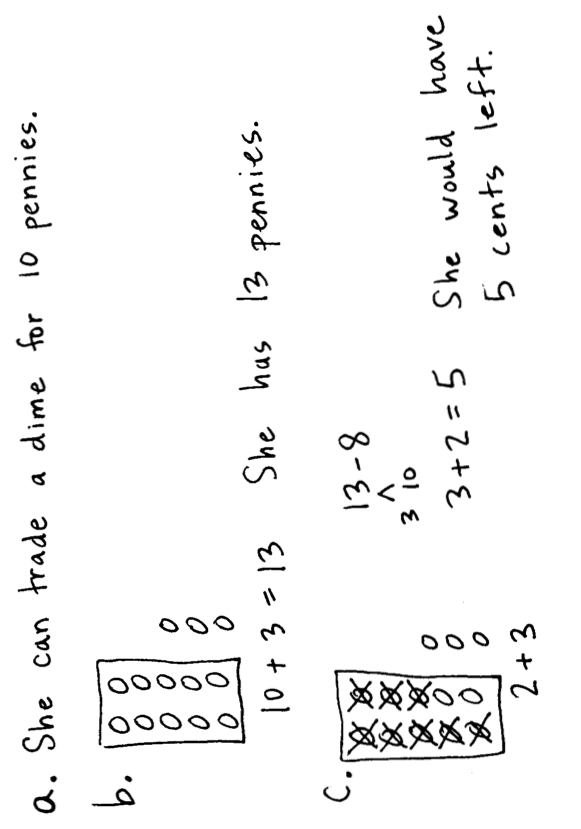 a. She can trade a dime for 10 pennies.
b.
10 + 3 = 13 She has 13 pennies.
c.
13 - 8
3 10
2 + 3
3 + 2 = 5 She would have
5 cents left.